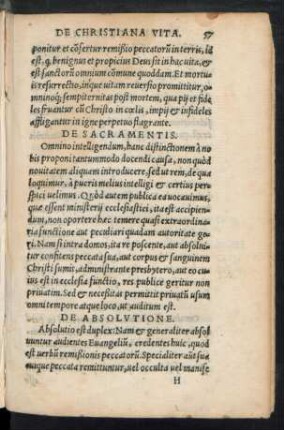 DE CHRISTIANA VITA. 57
ponitur et cōfertur remißio peccatorū in terris, id
est, q, benignus et propicius Deus sit in hac uita, &
est sanctorū omnium cōmune quoddam. Et mortuis
resurrectio, inque uitam reuersio promittitur,
omninoq; sempiternitas post mortem, qua pij et fide
les fruantur cū Christo in cœlis, impij & infideles
affligantur in igne perpetuo flagrante.
DE SACRAMENTIS.
Omnino intelligendum, hanc distinctionem à no
bis proponi tantummodo docendi causa, non quòd
nouitatem aliquam introducere, sed ut rem, de qua
loquimur, à pueris melius intelligi & certius per
spici uelimus. Quòd autem publica ea uocauimus,
quæ essent ministerij ecclesiastici, ita est accipien
dum, non oportere hæc temere quasi extraordina
ria functione aut peculiari quadam autoritate ge
ri. Nam si intra domos, ita re poscente, aut absolui
tur confitens peccata sua, aut corpus & sanguinem
Christi sumit, administrante presbytero, aut eo cu
ius est in ecclesia functio, res publicè geritur non
priuatim. Sed & necesitas permittit priuatū usum
omni tempore atque loco, ut auditum est.
DE ABSOLVTIONE.
Absolutio est duplex: Nam & generaliter absol
uuntur audientes Euangeliū, credentes huic, quod
est uerbū remißionis peccatorū. Specialiter aūt sua
cuique peccata remittuntur, uel occulta uel manife
H